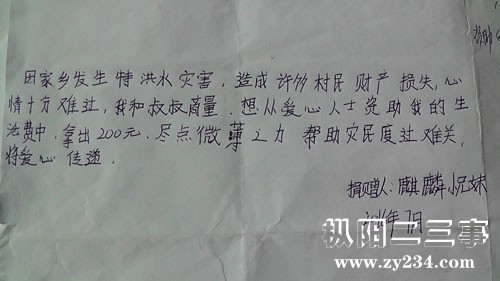 因家乡发生特洪水灾害，造成许多村民财产损失，心
情十方难过，我和叔叔商量．想从爱心人士资助我的生
活费中．拿出200元．尽点微薄之力 帮助灾民度过难关，
将爱心传递．
捐赠人：麒麟 兄妹
7月
枞阳二三事
www.zy234.com